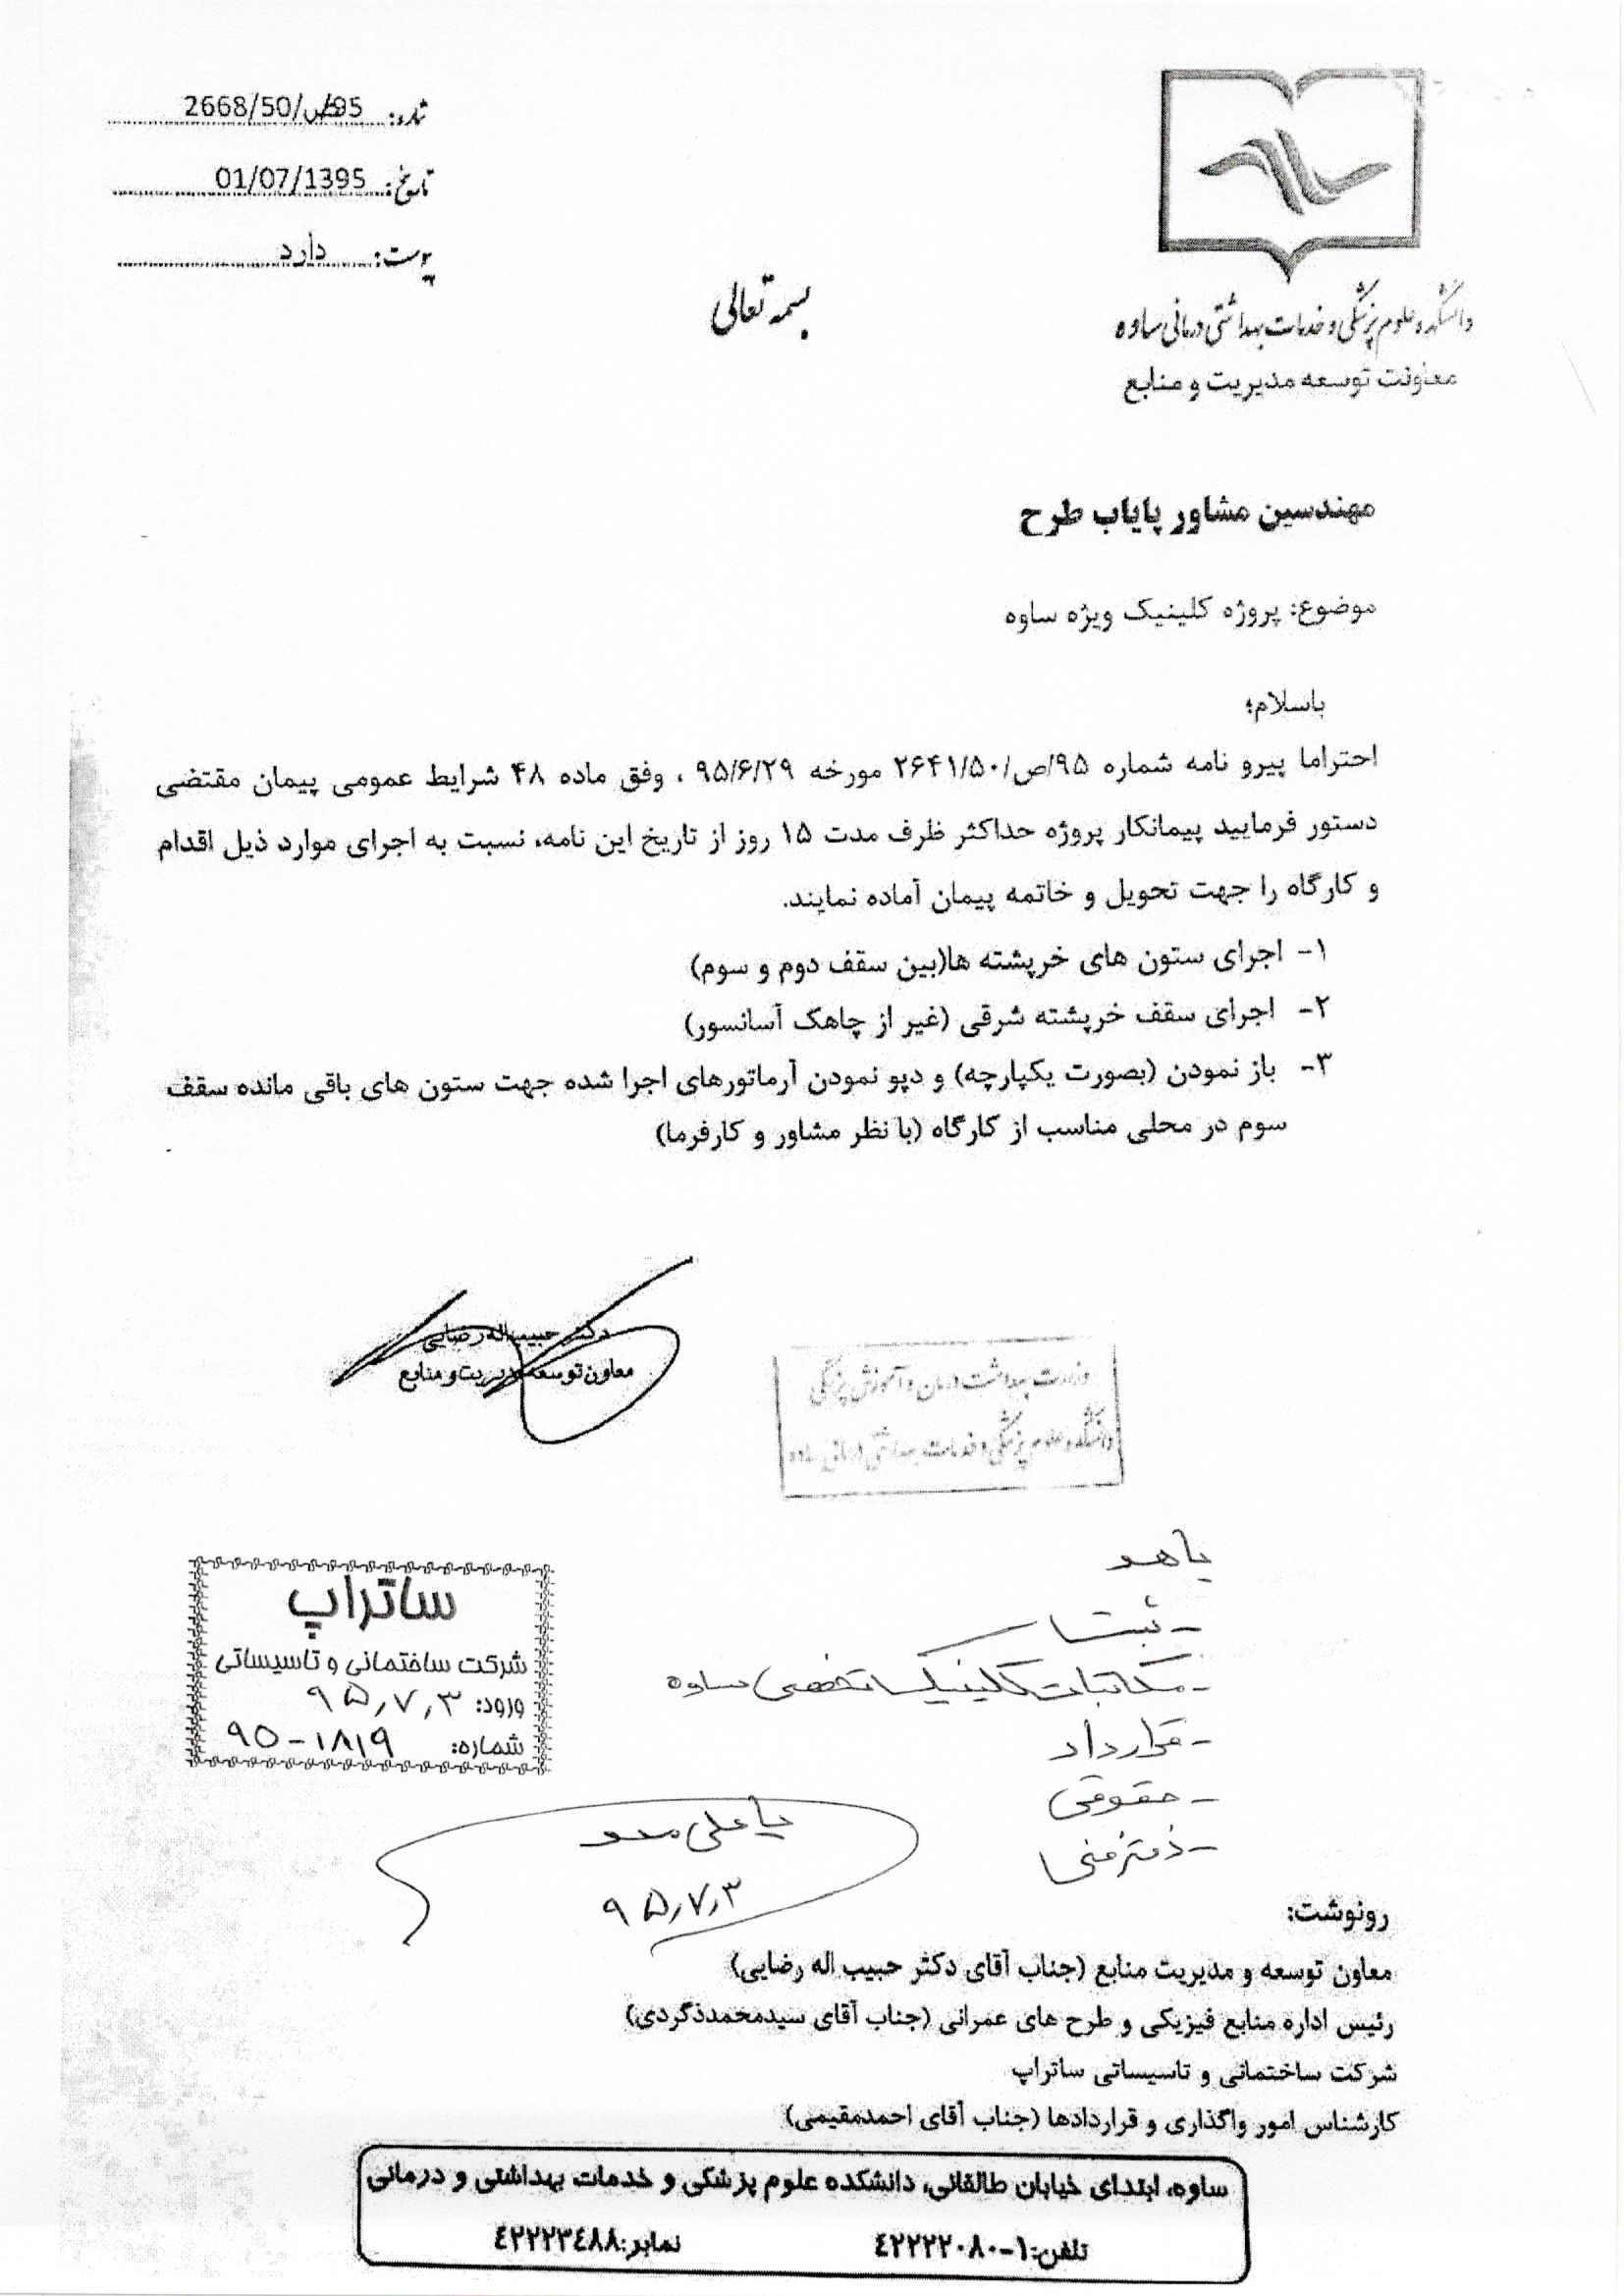 شماره: 95/ص/2668/50
تاریخ: 01/07/1395
پیوست: دارد
بسمه تعالی
دانشکده علوم پزشکی و خدمات بهداشتی درمانی ساوه
معاونت توسعه مدیریت و منابع
مهندسین مشاور پایاب طرح
موضوع: پروژه کلینیک ویژه ساوه
باسلام؛
احتراما پیرو نامه شماره ۹۵/ص/۲۶۴۱/۵۰ مورخه ۹۵/۶/۲۹ ، وفق ماده ۴۸ شرایط عمومی پیمان مقتضی
دستور فرمایید پیمانکار پروژه حداکثر ظرف مدت ۱۵ روز از تاریخ این نامه، نسبت به اجرای موارد ذیل اقدام
و کارگاه را جهت تحویل و خاتمه پیمان آماده نمایند.
۱- اجرای ستون های خرپشته ها(بین سقف دوم و سوم)
۲- اجرای سقف خرپشته شرقی (غیر از چاهک آسانسور)
۳- باز نمودن (بصورت یکپارچه) و دپو نمودن آرماتورهای اجرا شده جهت ستون های باقی مانده سقف
سوم در محلی مناسب از کارگاه (با نظر مشاور و کارفرما)
دکتر حبیب اله رضایی
معاون توسعه مدیریت و منابع
یا هو
- ثبت
- مکاتبات کلینیک تخصصی ساوه
- قرارداد
- حقوقی
- دفتر فنی
ساتراپ
شرکت ساختمانی و تاسیساتی
ورود: ۹۵٫۷٫۳
شماره: ۹۵-۱۸۱۹
یا علی مدد
۹۵٫۷٫۳
رونوشت:
معاون توسعه و مدیریت منابع (جناب آقای دکتر حبیب اله رضایی)
رئیس اداره منابع فیزیکی و طرح های عمرانی (جناب آقای سیدمحمدذگردی)
شرکت ساختمانی و تاسیساتی ساتراپ
کارشناس امور واگذاری و قراردادها (جناب آقای احمدمقیمی)
ساوه، ابتدای خیابان طالقانی، دانشکده علوم پزشکی و خدمات بهداشتی و درمانی
تلفن:۱-۴۲۲۲۲۰۸۰
نمابر:۴۲۲۲۳۴۸۸